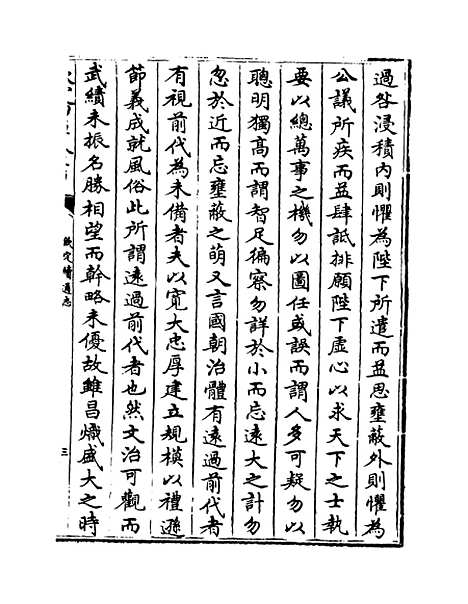 過咎浸積內則懼為陛下所遣而益思壅蔽外則懼為
公議所疾而益肆詆排願陛下虛心以求天下之士執
要以總萬事之機勿以圖任或誤而謂人多可疑勿以
聰明獨髙而謂智足徧察勿詳於小而忘逺大之計勿
忽於近而忘壅蔽之萌又言國朝治體有逺過前代者
有視前代為未備者夫以寛大忠厚建立規模以禮遜
節義成就風俗此所謂逺過前代者也然文治可觀而
武績未振名勝相望而幹略未優故雖昌熾盛大之時
欽定續通志
三